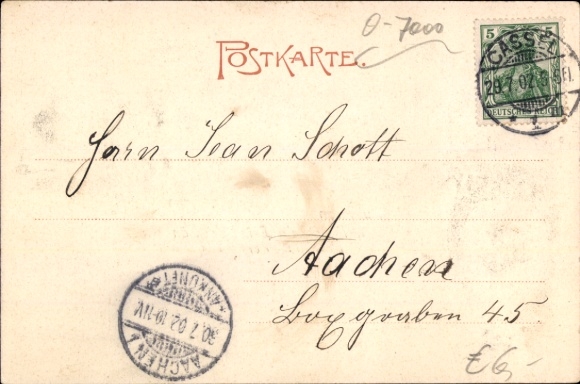 0-7000
POSTKARTE.
5 5
CASSEL
29.7.02
DEUTSCHES REICH
1
Herrn Jean Schott
Aachen
Boxgraben 45.
AACHEN 1
30.7.02.10-11V.
*ANKUNFT*
€6,-